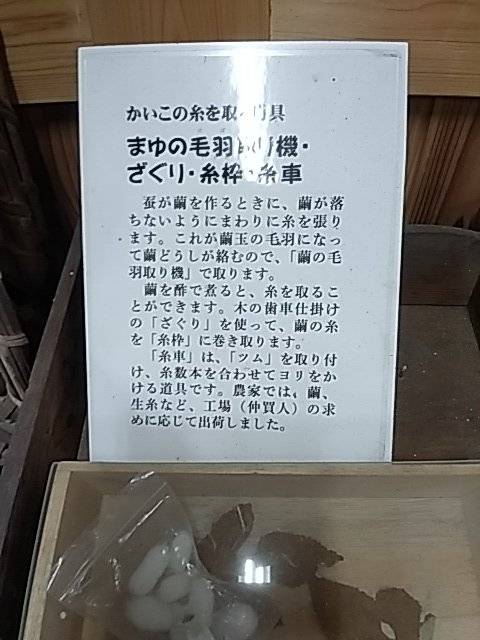 かいこの糸を取る道具
まゆの毛羽取り機・
ざぐり・糸枠・糸車
蚕が繭を作るときに、繭が落
ちないようにまわりに糸を張り
ます。これが繭玉の毛羽になっ
て繭どうしが絡むので、「繭の毛
羽取り機」で取ります。
繭を酢で煮ると、糸を取るこ
とができます。木の歯車仕掛け
の「ざぐり」を使って、繭の糸
を「糸枠」に巻き取ります。
「糸車」は、「ツム」を取り付
け、糸数本を合わせてヨリをか
ける道具です。農家では、繭、
生糸など、工場（仲買人）の求
めに応じて出荷しました。